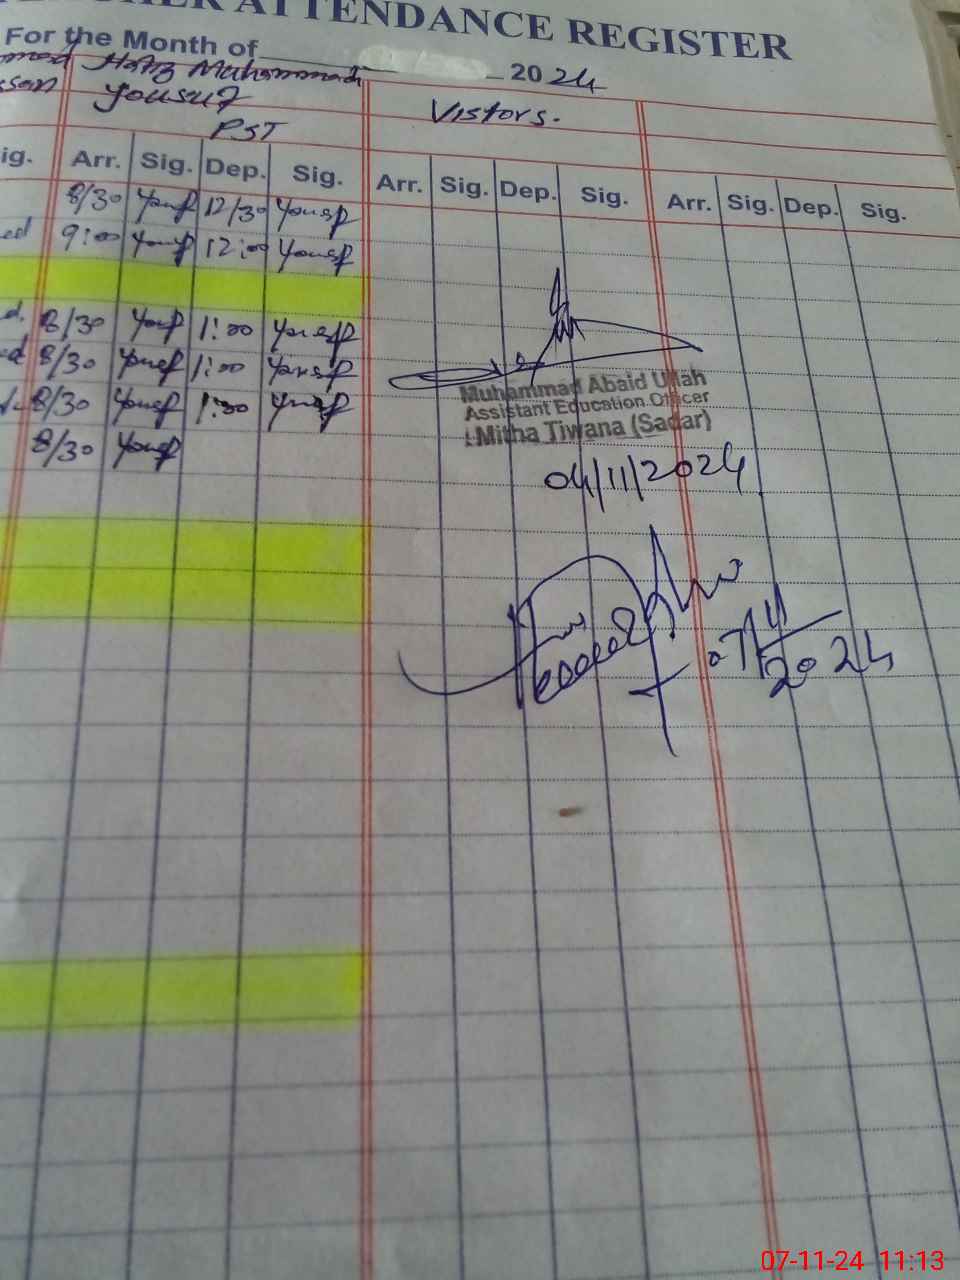 ATTENDANCE REGISTER
For the Month of 2024
Hafiz Muhammad
Yousuf
PST
Vistors.
ig. Arr. Sig. Dep. Sig. Arr. Sig. Dep. Sig. Arr. Sig. Dep. Sig.
8/30 Yousf 12/30 Yousf
ed 9:00 Yousf 12:00 Yousf
8/30 Yousf 1:00 Yousf
8/30 Yousf 1:00 Yousf
8/30 Yousf 1:30 Yousf
8/30 Yousf
Muhammad Abaid Ullah
Assistant Education Officer
Mitha Tiwana (Sadar)
04/11/2024
07/11
2024
07-11-24 11:13